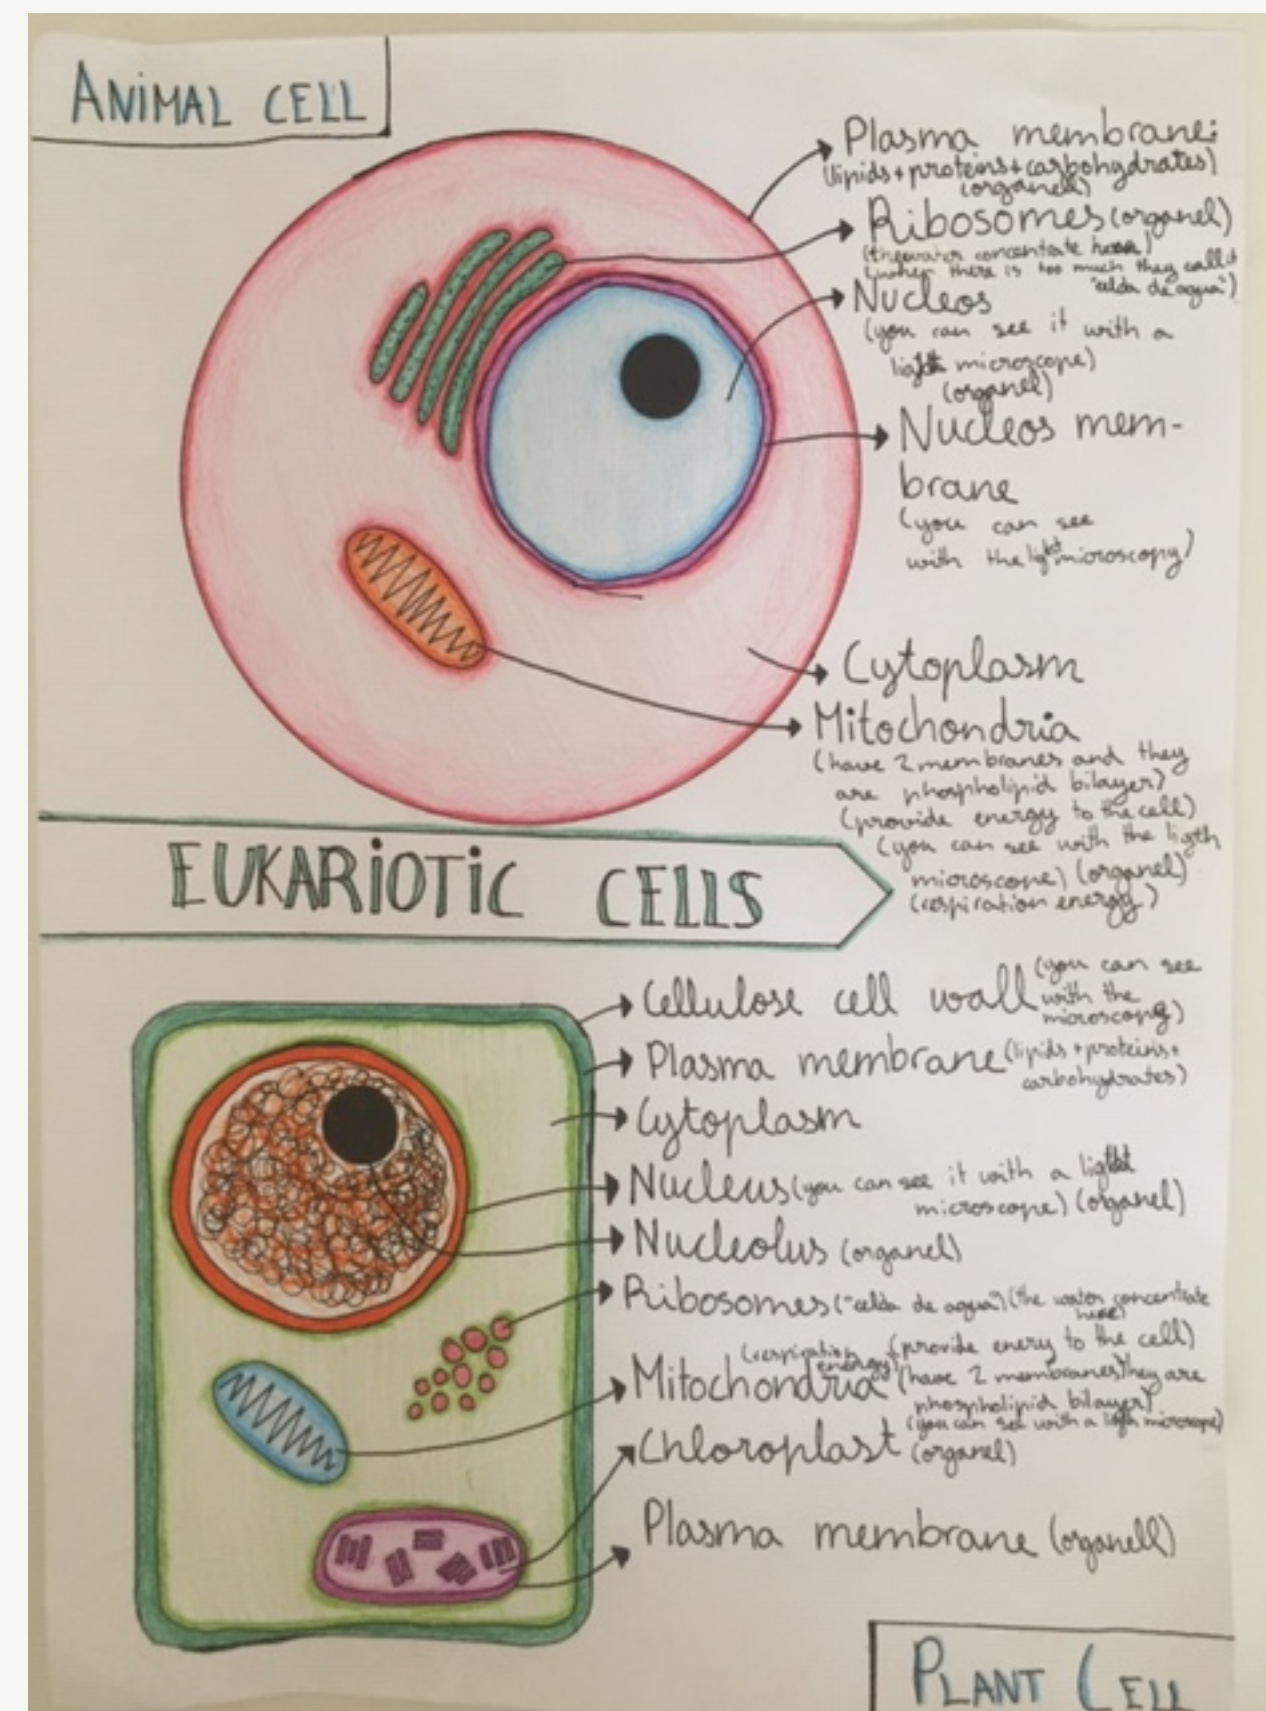 ANIMAL CELL
Plasma membrane:
(lipids+proteins+carbohydrates)
(organell)
Ribosomes (organel)
(the water concentrate here)
(when there is too much they call it
"celda de agua")
Nucleos
(you can see it with a
light microscope)
(organel)
Nucleos mem-
brane
(you can see
with the light microscopy)
Cytoplasm
Mitochondria
(have 2 membranes and they
are phospholipid bilayer)
(provide energy to the cell)
(you can see with the ligth
microscope) (organel)
(respiration energy)
EUKARIOTIC CELLS
Cellulose cell wall (you can see
with the
microscopy)
Plasma membrane (lipids+proteins+
carbohydrates)
Cytoplasm
Nucleus (you can see it with a light
microscope) (organel)
Nucleolus (organel)
Ribosomes ("celda de agua") (the water concentrate
here)
(respiration energy) (provide enery to the cell)
Mitochondria (have 2 membranes they are
phospholipid bilayer)
(you can see with a microscope)
Chloroplast (organel)
Plasma membrane (organell)
PLANT CELL